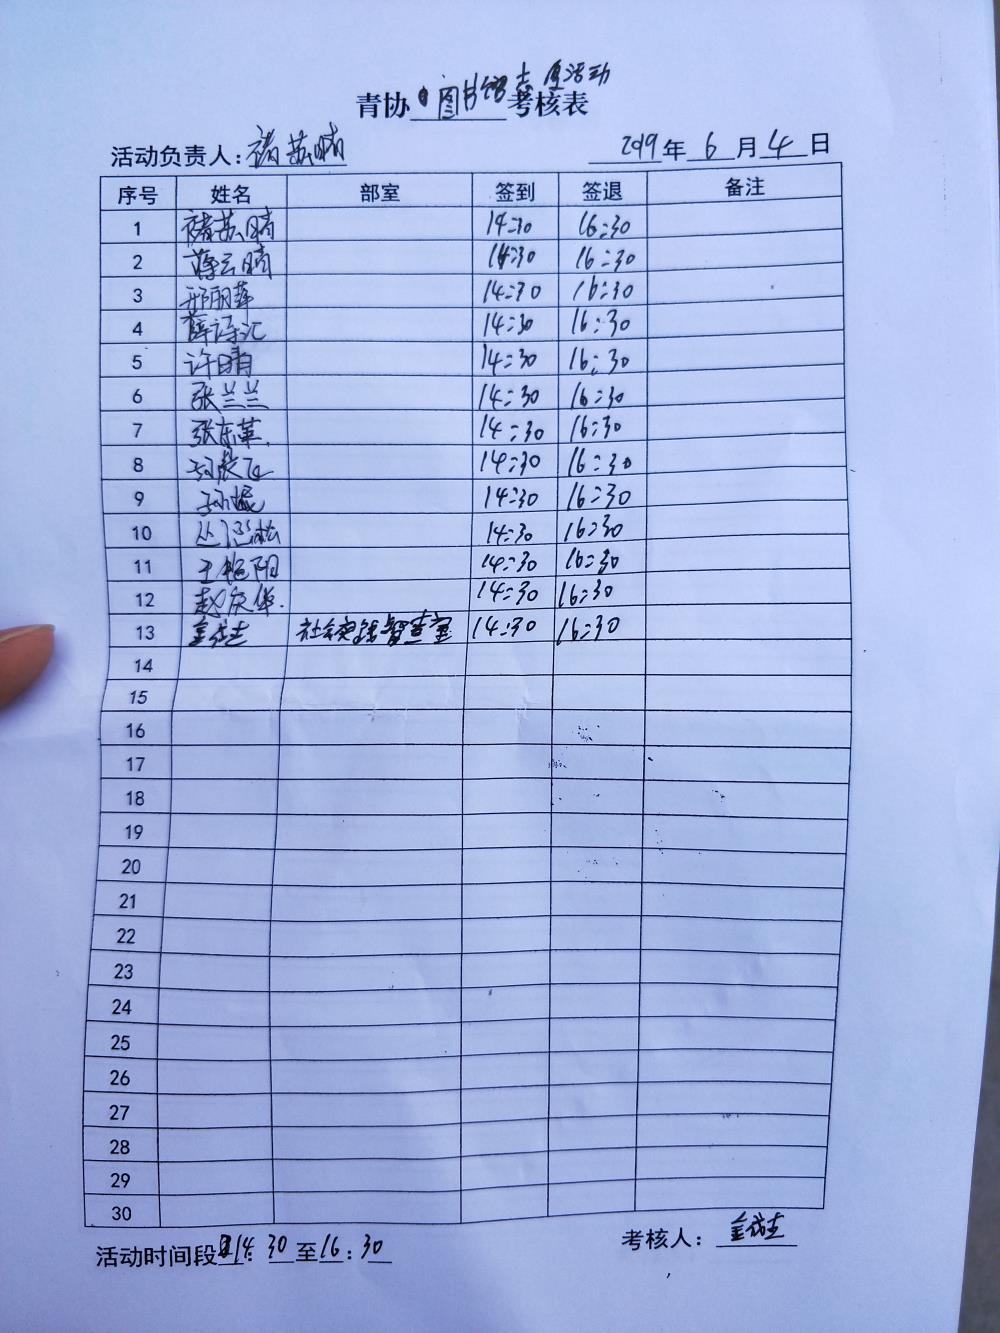 青协图书馆志愿活动考核表
活动负责人:褚苏晴 2019年6月4日
序号 姓名 部室 签到 签退 备注
1 褚苏晴 14:30 16:30
2 蒋云晴 14:30 16:30
3 邢丽萍 14:30 16:30
4 薛译汇 14:30 16:30
5 许晴 14:30 16:30
6 张兰兰 14:30 16:30
7 张东革 14:30 16:30
8 14:30 16:30
9 14:30 16:30
10 14:30 16:30
11 王艳阳 14:30 16:30
12 赵庆华 14:30 16:30
13 社会实践督查室 14:30 16:30
14
15
16
17
18
19
20
21
22
23
24
25
26
27
28
29
30
活动时间段14:30至16:30 考核人: